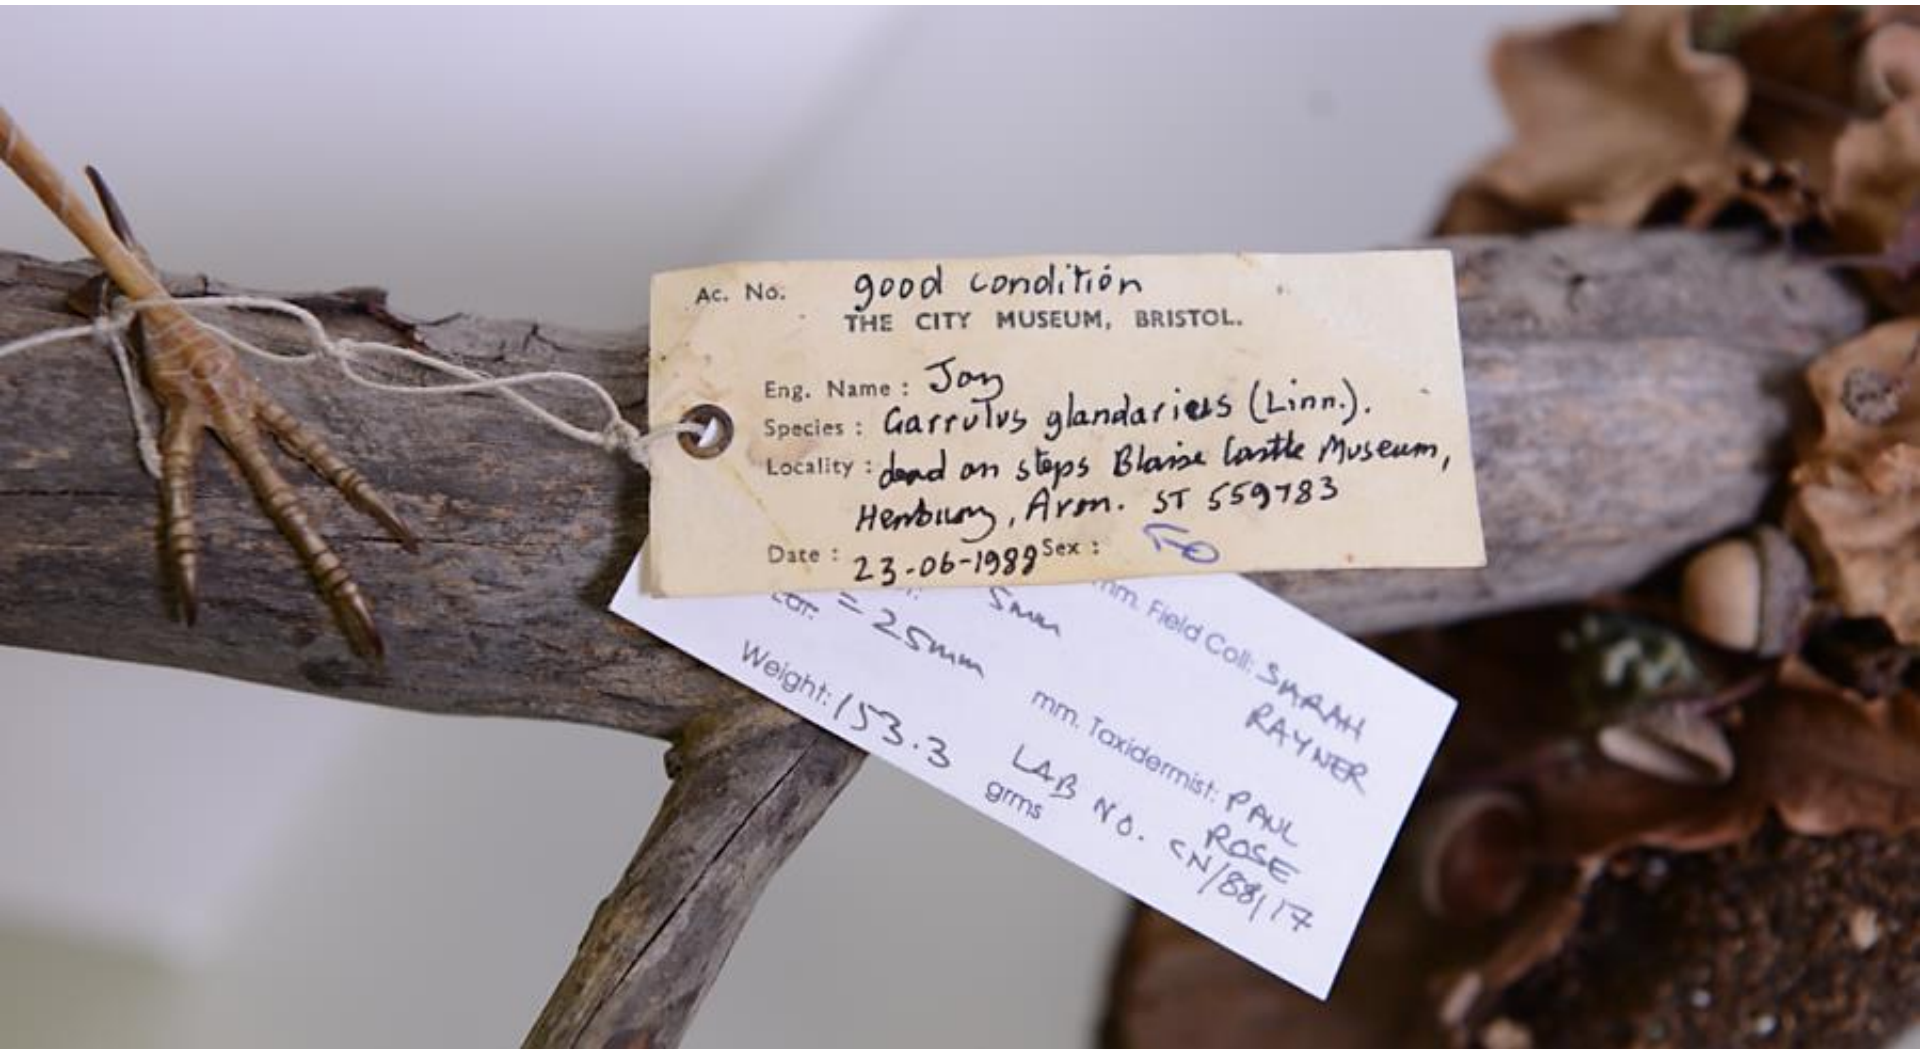 Ac. No. good condition
THE CITY MUSEUM, BRISTOL.
Eng. Name : Jay
Species : Garrulus glandarius (Linn.).
Locality : dead on steps Blaise Castle Museum,
Henbury, Avon. ST 559783
Date : 23-06-1988 Sex :
5mm mm. Field Coll: SARAH
RAYNER
= 25mm mm. Taxidermist: PAUL
ROSE
Weight: 153.3 grms
LAB NO. CN/88/17